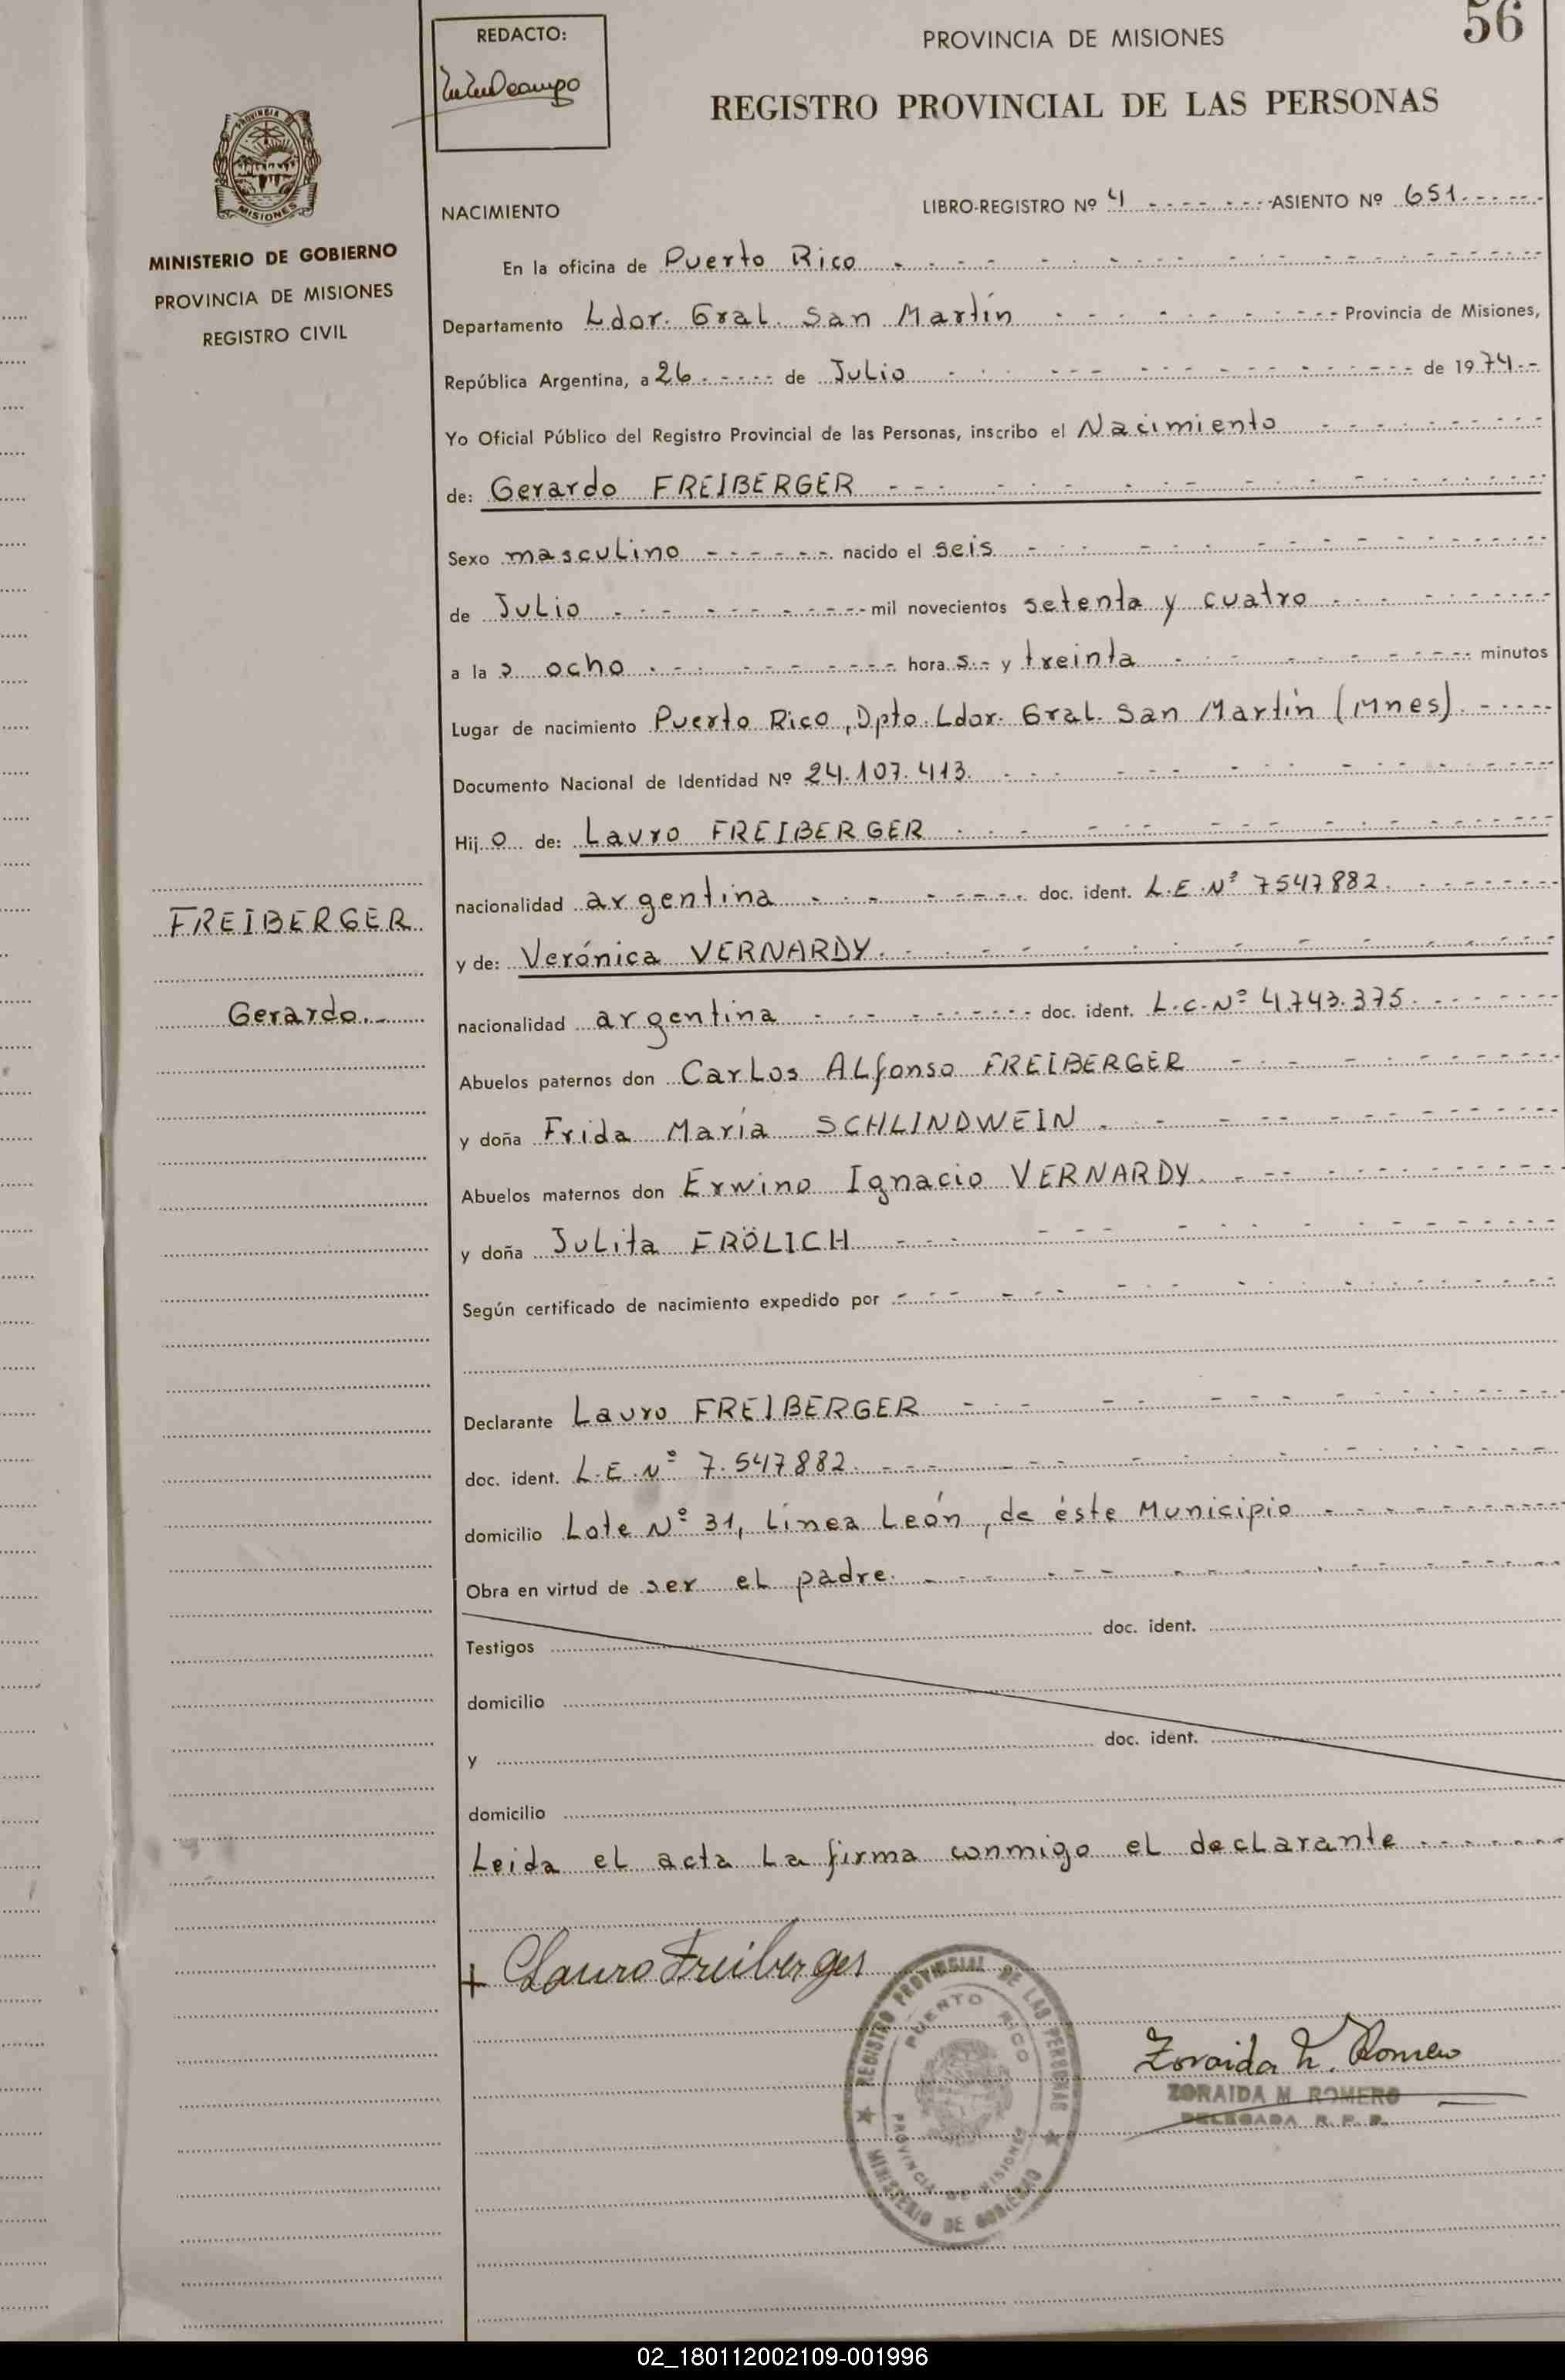 56
REDACTO:
PROVINCIA DE MISIONES
REGISTRO PROVINCIAL DE LAS PERSONAS
PROVINCIA DE
MISIONES
MINISTERIO DE GOBIERNO
PROVINCIA DE MISIONES
REGISTRO CIVIL
NACIMIENTO LIBRO-REGISTRO Nº 4 ASIENTO Nº 651
En la oficina de Puerto Rico
Departamento Ldor. Gral. San Martín Provincia de Misiones,
República Argentina, a 26 de Julio de 1974
Yo Oficial Público del Registro Provincial de las Personas, inscribo el Nacimiento
de: Gerardo FREIBERGER
Sexo masculino nacido el seis
de Julio mil novecientos setenta y cuatro
a la s ocho hora s y treinta minutos
Lugar de nacimiento Puerto Rico, Dpto. Ldor. Gral. San Martín (Mnes)
Documento Nacional de Identidad Nº 24.107.413
Hij o de: Lauro FREIBERGER
nacionalidad argentina doc. ident. L.E.Nº 7547882
y de: Verónica VERNARDY
nacionalidad argentina doc. ident. L.C.Nº 4.743.375
Abuelos paternos don Carlos Alfonso FREIBERGER
y doña Frida María SCHLINDWEIN
Abuelos maternos don Erwino Ignacio VERNARDY
y doña Julita FRÖLICH
Según certificado de nacimiento expedido por
Declarante Lauro FREIBERGER
doc. ident. L.E.Nº 7.547882
domicilio Lote Nº 31, Línea León, de éste Municipio
Obra en virtud de ser el padre
Testigos doc. ident.
domicilio
y doc. ident.
domicilio
Leida el acta la firma conmigo el declarante
FREIBERGER
Gerardo
+ Lauro Freiberger
REGISTRO PROVINCIAL DE LAS PERSONAS
PUERTO RICO
PROVINCIA DE MISIONES
MINISTERIO DE GOBIERNO
Zoraida M. Romero
ZORAIDA M. ROMERO
DELEGADA R. P. P.
02_180112002109-001996